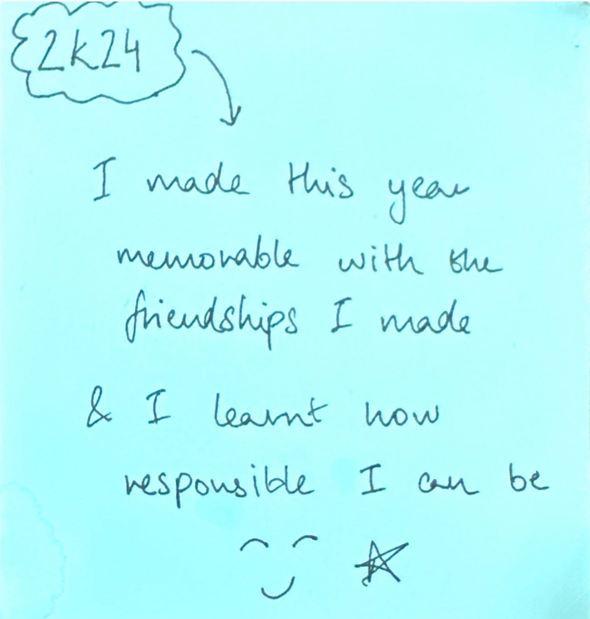 2k24
I made this year
memorable with the
friendships I made
& I learnt how
responsible I can be